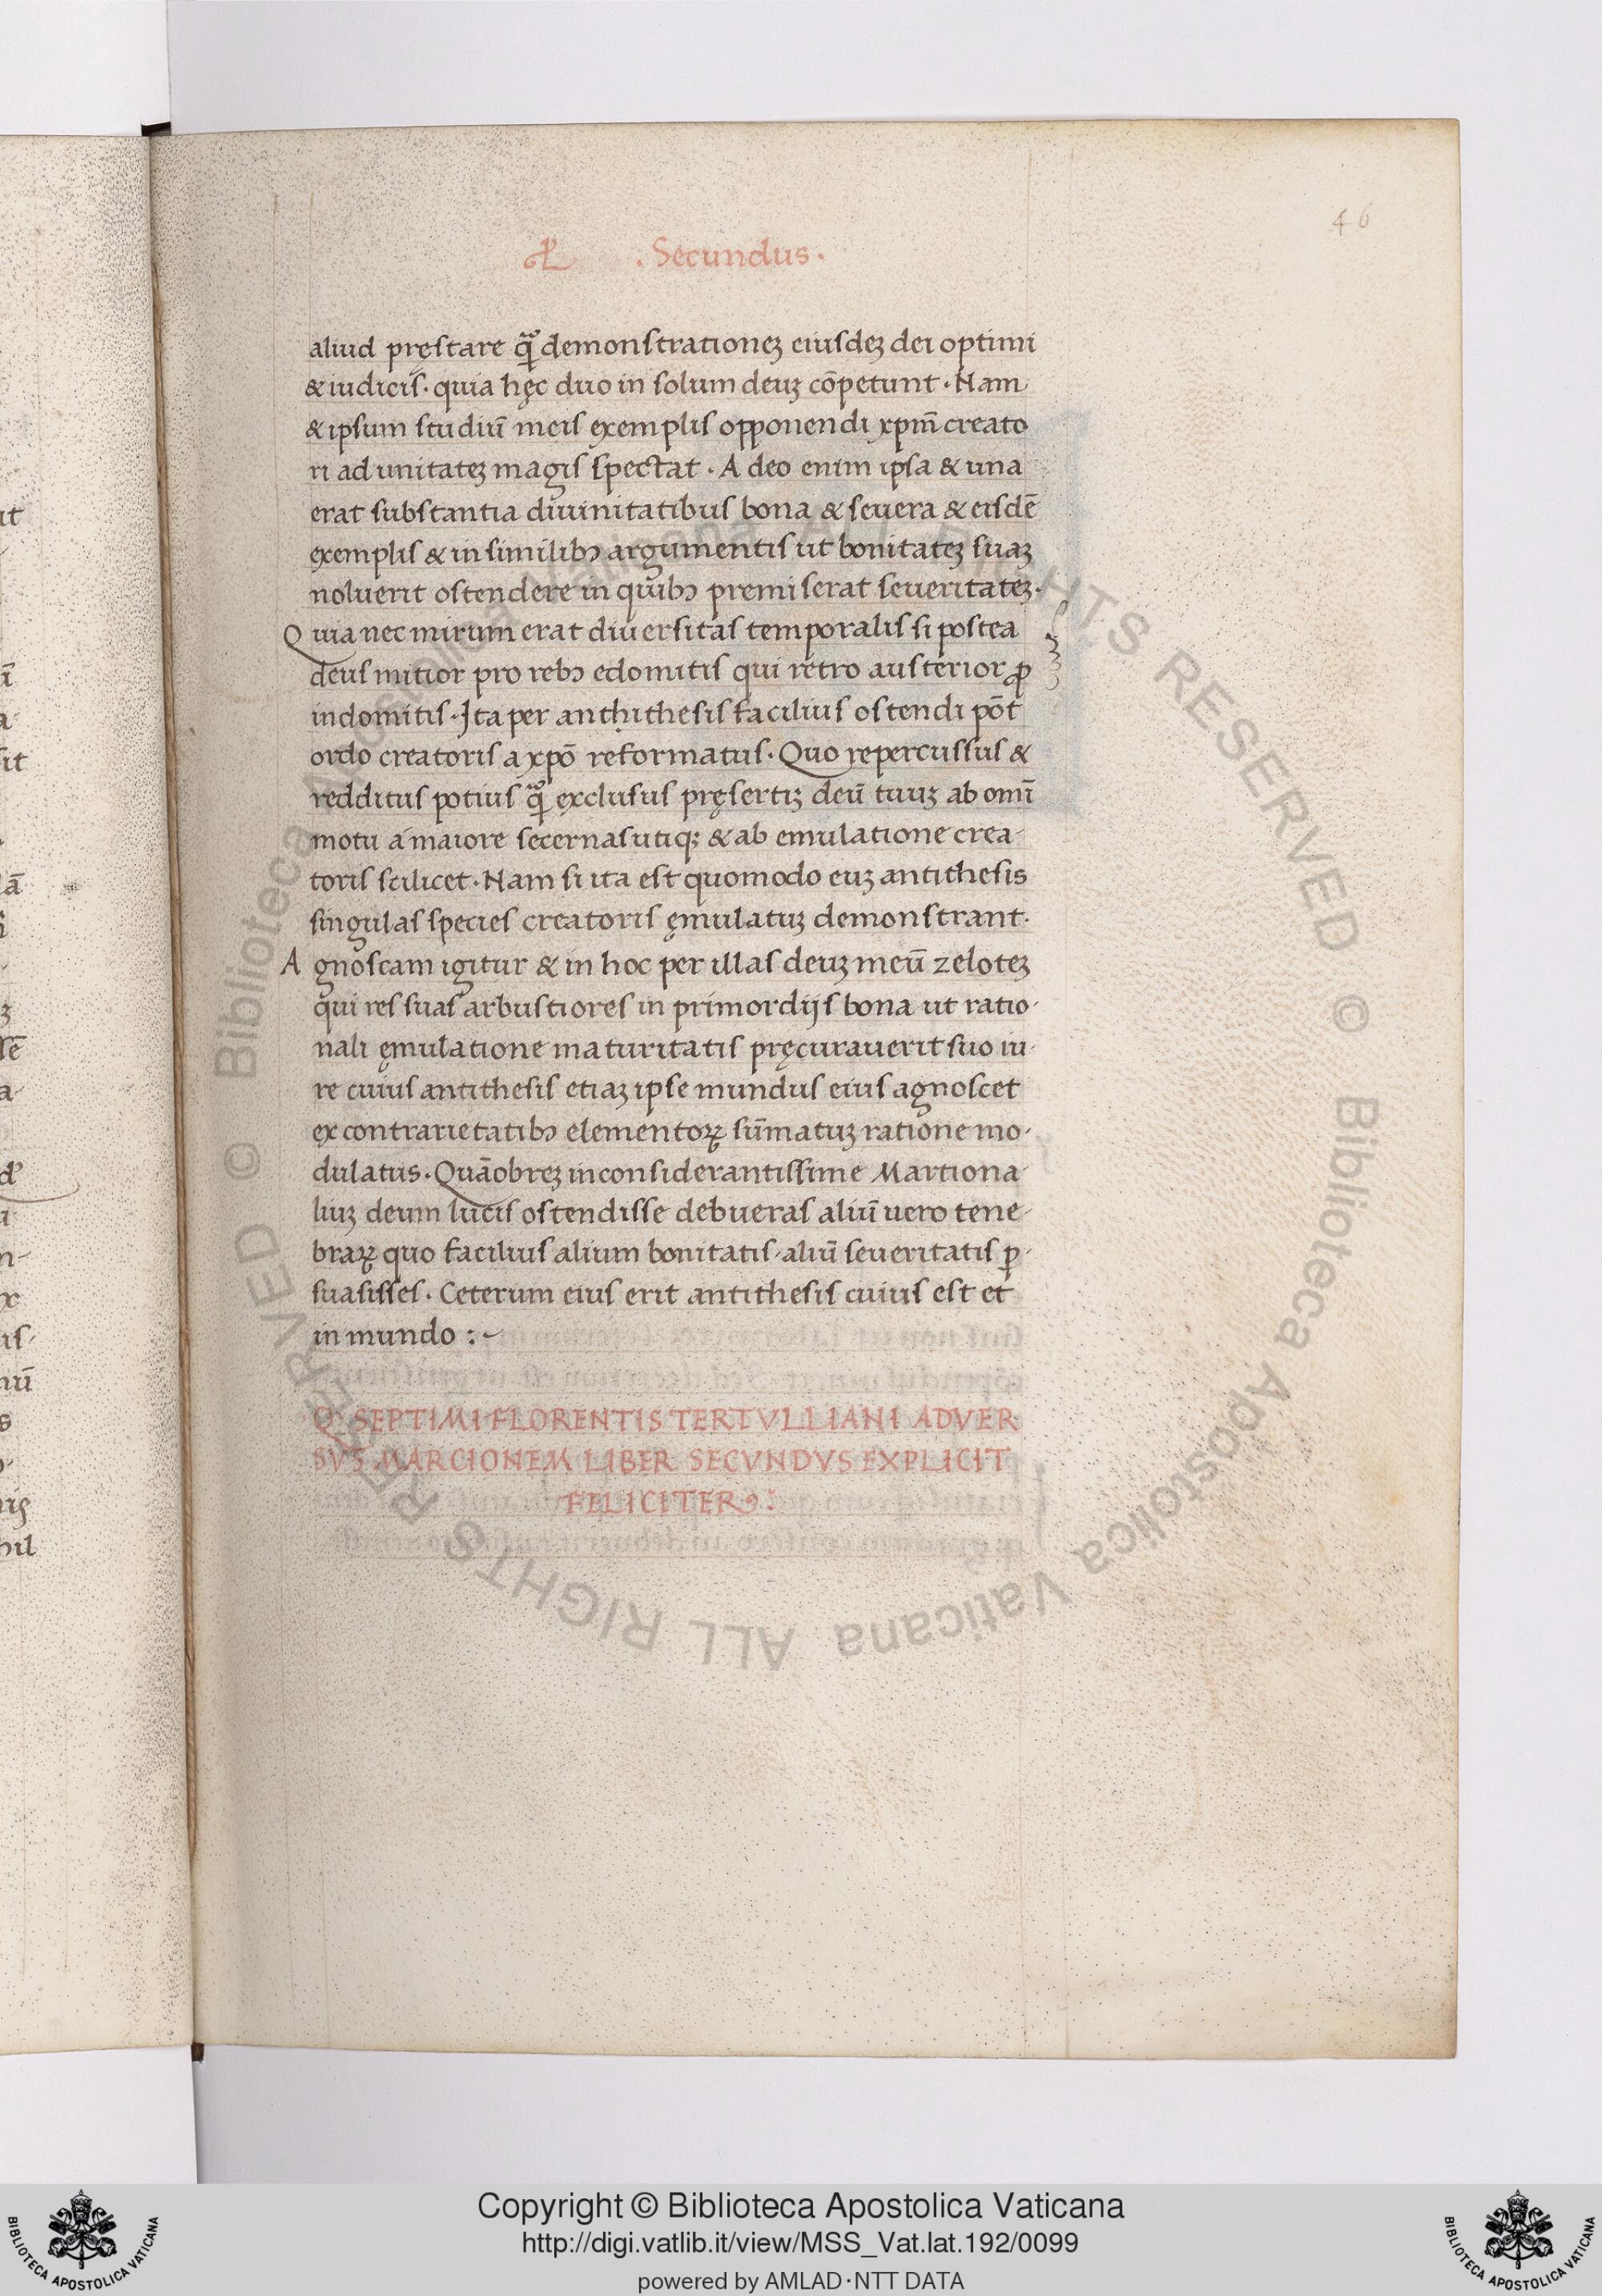 46
. Secundus .
aliud pręstare q̃ demonstrationeꝫ eiusdeꝫ dei optimi
& iudicis . quia hęc duo in solum deuꝫ cōpetunt . Nam
& ipsum studiū meis exemplis opponendi xpm̄ creato
ri ad unitateꝫ magis spectat . A deo enim ipsa & una
erat substantia diuinitatibus bona & seuera & eisdē
exemplis & in similibꝫ argumentis ut bonitateꝫ suaꝫ
noluerit ostendere in quibꝫ premiserat seueritateꝫ .
Quia nec mirum erat diuersitas temporalis si postea
deus mitior pro rebꝫ edomitis qui retro austerior ꝓ
indomitis . Ita per anthithesis facilius ostendi pōt
ordo creatoris a xpō reformatus . Quo repercussus &
redditus potius q̃ exclusus pręsertiꝫ deū tuuꝫ ab omī
motu amaiore secernas utiqꝫ & ab emulatione crea-
toris scilicet . Nam si ita est quomodo euꝫ antithesis
singulas species creatoris ęmulatuꝫ demonstrant .
Agnoscam igitur & in hoc per illas deuꝫ meū zeloteꝫ
qui res suas arbustiores in primordijs bona ut ratio-
nali ęmulatione maturitatis pręcurauerit suo iu-
re cuius antithesis etiaꝫ ipse mundus eius agnoscet
ex contrarietatibꝫ elementoꝝ sūmatuꝫ ratione mo-
dulatus . Quāobreꝫ inconsiderantissime Martiona
liuꝫ deum lucis ostendisse debueras aliū uero tene-
braꝝ quo facilius alium bonitatis . aliū seueritatis ꝑ-
suasisses . Ceterum eius erit antithesis cuius est et
in mundo : -
Q. SEPTIMI FLORENTIS TERTVLLIANI ADVER
SVS MARCIONEM LIBER SECVNDVS EXPLICIT
FELICITER
Copyright © Biblioteca Apostolica Vaticana
http://digi.vatlib.it/view/MSS_Vat.lat.192/0099
powered by AMLAD·NTT DATA
BIBLIOTECA APOSTOLICA VATICANA
BIBLIOTECA APOSTOLICA VATICANA
© Biblioteca Apostolica Vaticana ALL RIGHTS RESERVED © Biblioteca Apostolica Vaticana ALL RIGHTS RESERVED